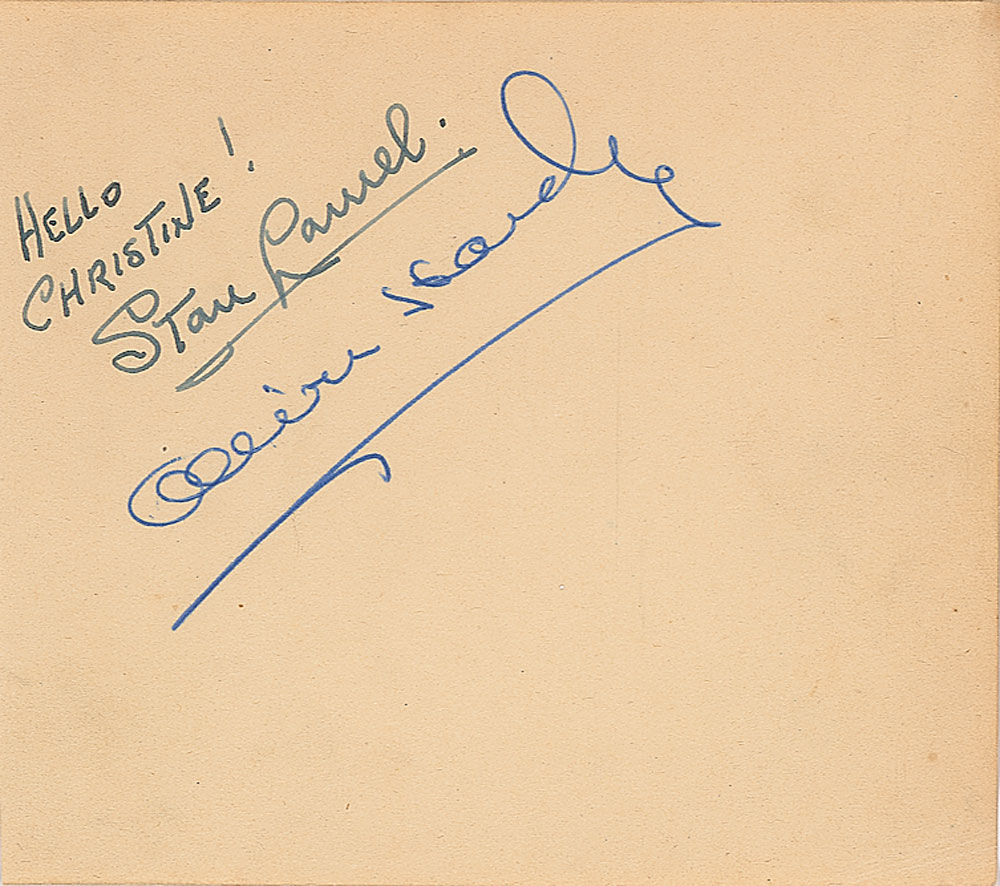 HELLO
CHRISTINE!
Stan Laurel.
Oliver Hardy